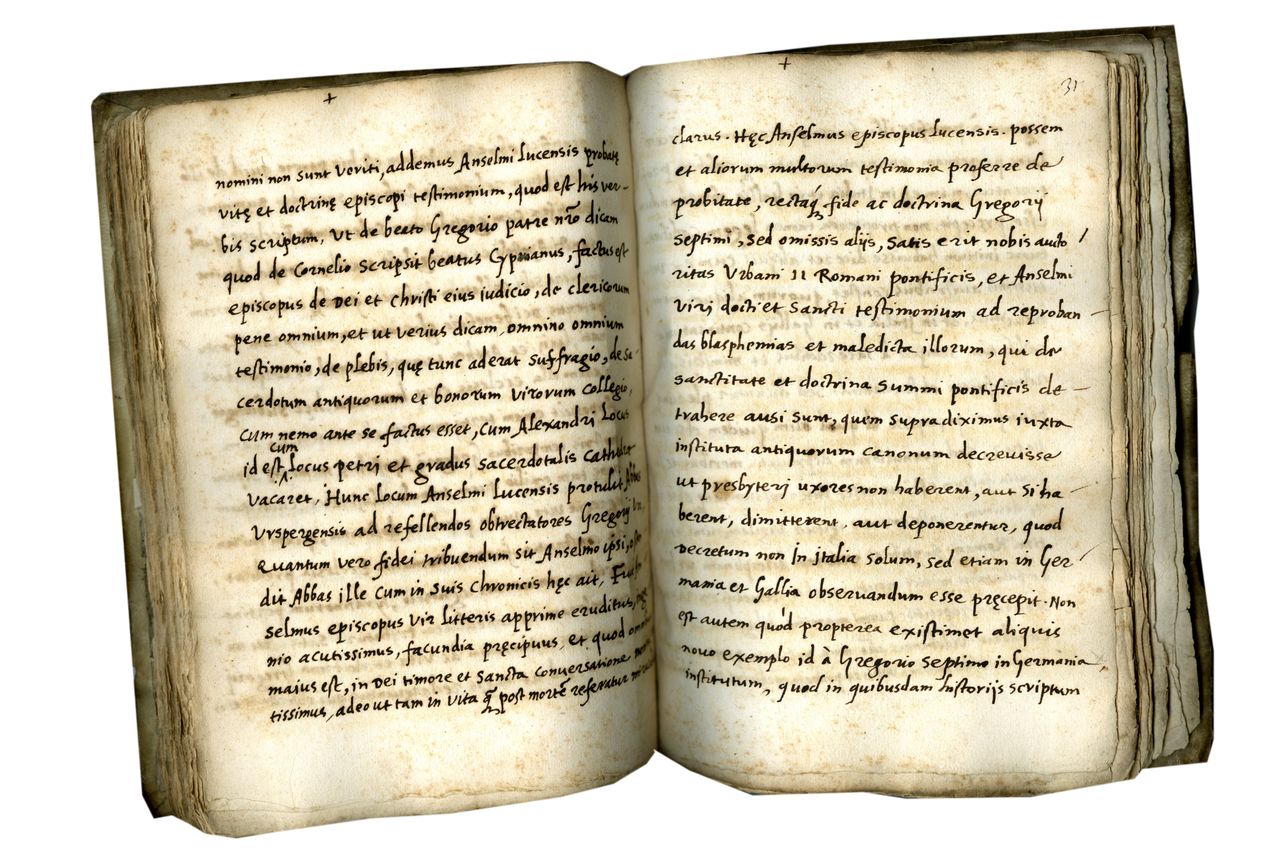 nomini non sunt veriti, addemus Anselmi Lucensis probatę
vitę et doctrinę episcopi testimonium, quod est his ver-
bis scriptum, Ut de beato Gregorio patre nr̃o dicam
quod de Cornelio scripsit beatus Cyprianus, factus est
episcopus de Dei et Christi eius iudicio, de clericorum
pene omnium, et ut verius dicam, omnino omnium
testimonio, de plebis, quę tunc aderat suffragio, de sa-
cerdotum antiquorum et bonorum virorum collegio,
cum nemo ante se factus esset, cum Alexandri locus
cum
id est, locus petri et gradus sacerdotalis cathedrę
vacaret, Hunc locum Anselmi Lucensis protulit Abbas
Urspergensis ad refellendos obtrectatores Gregorij
Quantum vero fidei tribuendum sit Anselmo ipsi,
dit Abbas ille cum in suis chronicis hęc ait,
selmus episcopus vir litteris apprime eruditus,
nio acutissimus, facundia pręcipuus, et quod
maius est, in Dei timore et sancta conversatione
tissimus, adeo ut tam in vita q̃ post mortẽ referatur
+
+
31
clarus. Hęc Anselmus episcopus Lucensis. possem
et aliorum multorum testimonia proferre de
probitate, rectaq́ fide ac doctrina Gregorij
septimi, sed omissis alijs, satis erit nobis aucto /
ritas Urbani II Romani pontificis, et Anselmi
viri docti et sancti testimonium ad reproban -
das blasphemias et maledicta illorum, qui de
sanctitate et doctrina summi pontificis de -
trahere ausi sunt, quem supra diximus iuxta
instituta antiquorum canonum decrevisse
ut presbyterj uxores non haberent, aut si ha -
berent, dimitterent, aut deponerentur, quod
decretum non in italia solum, sed etiam in Ger /
mania et Gallia observandum esse pręcepit. Non
est autem quòd propterea existimet aliquis
novo exemplo id à Gregorio septimo in Germania
institutum, quod in quibusdam historijs scriptum